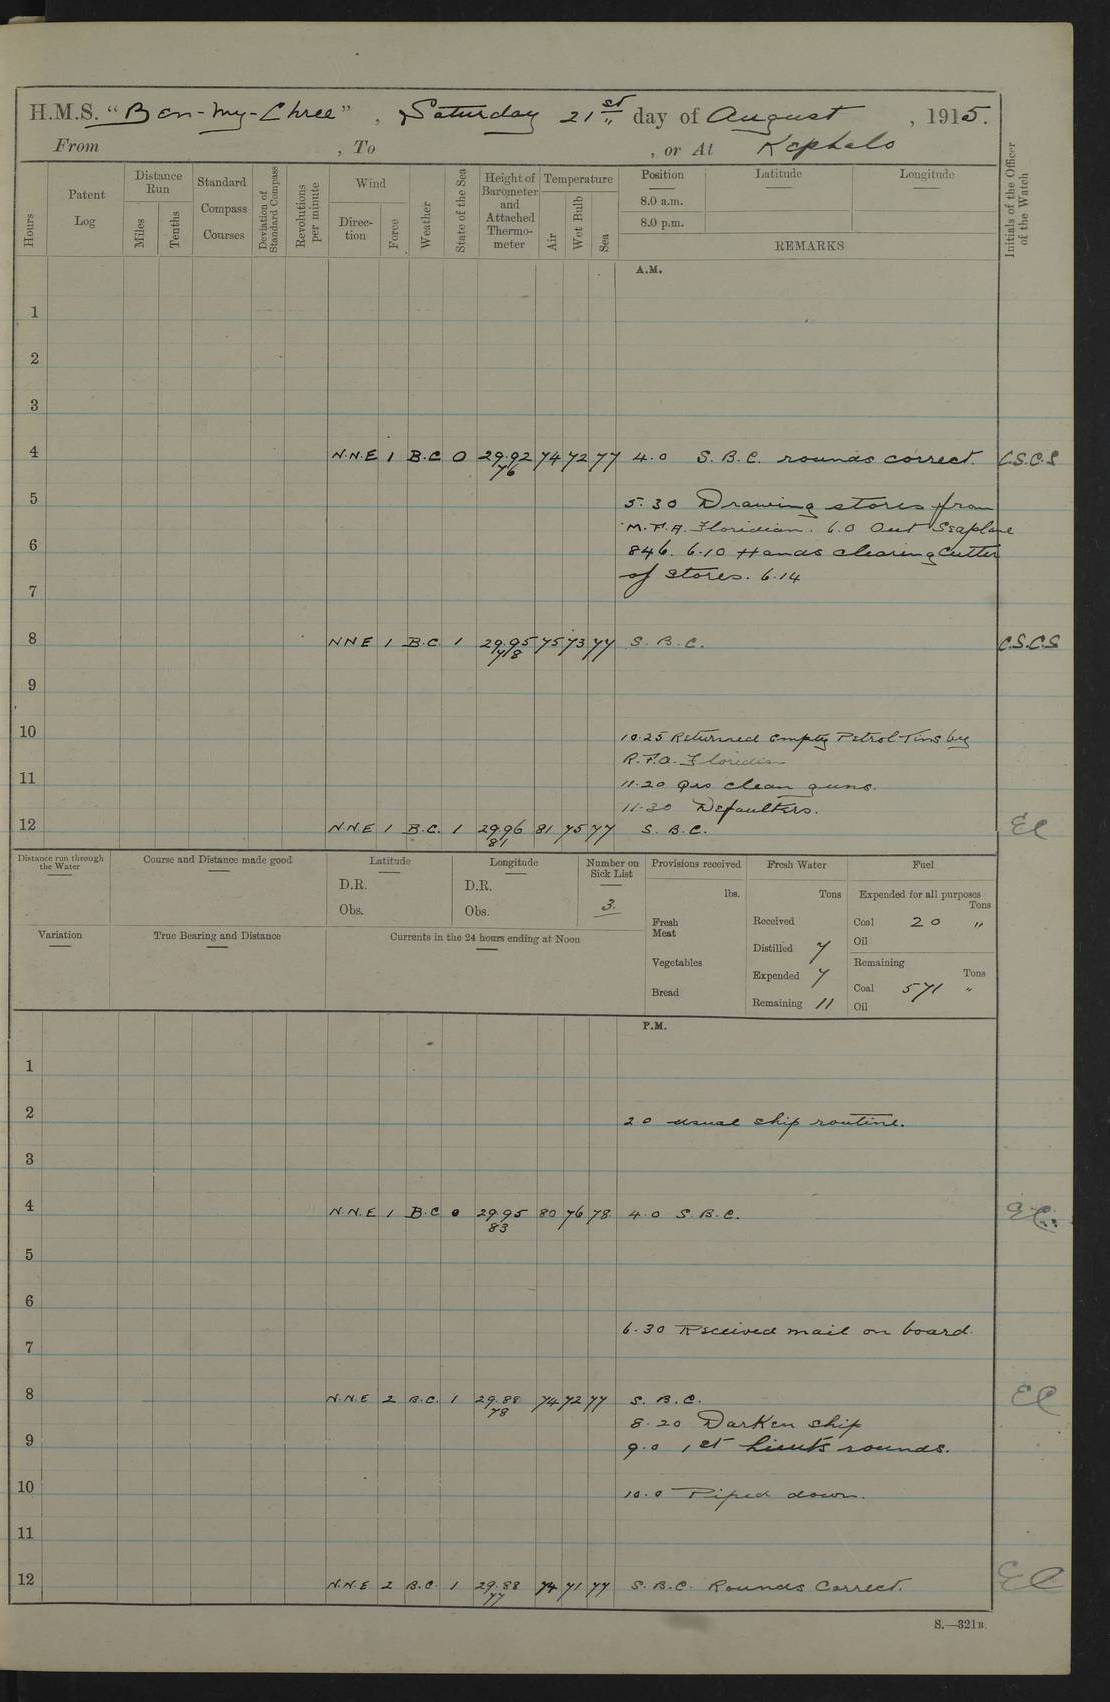 H.M.S. "Ben-my-Chree", Saturday 21st day of August, 1915.
From , To , or At Kephalo
Hours
Patent Log
Distance Run
Miles
Tenths
Standard Compass Courses
Deviation of Standard Compass
Revolutions per minute
Wind
Direction
Force
Weather
State of the Sea
Height of Barometer and Attached Thermometer
Temperature
Air
Wet Bulb
Sea
Position
8.0 a.m.
8.0 p.m.
Latitude
Longitude
REMARKS
Initials of the Officer of the Watch
A.M.
1
2
3
4 N.N.E 1 B.C 0 29.92 74 72 77 4.0 S.B.C. rounds correct. C.S.C.S
76
5 5.30 Drawing stores from
M.F.A. Floridian. 6.0 Out Seaplane
6 846. 6.10 Hands clearing Cutter
of stores. 6.14
7
8 NNE 1 B.C. 1 29.95 75 73 77 S.B.C. C.S.C.S
78
9
10 10.25 Returned empty Petrol Tins by
R.F.A. Floridian
11 11.20 Qrs clean guns.
11.30 Defaulters.
12 N.N.E 1 B.C. 1 29.96 81 75 77 S.B.C. EC
81
Distance run through the Water
Course and Distance made good
Latitude
D.R.
Obs.
Longitude
D.R.
Obs.
Number on Sick List
3.
Provisions received
lbs.
Fresh Meat
Vegetables
Bread
Fresh Water
Tons
Received
Distilled 7
Expended 7
Remaining 11
Fuel
Expended for all purposes
Tons
Coal 20 "
Oil
Remaining
Tons
Coal 571 "
Oil
Variation
True Bearing and Distance
Currents in the 24 hours ending at Noon
P.M.
1
2 20 usual ship routine.
3
4 N.N.E 1 B.C 0 29.95 80 76 78 4.0 S.B.C. EC.
83
5
6
6.30 Received mail on board.
7
8 N.N.E 2 B.C. 1 29.88 74 72 77 S.B.C. EC
78
8.20 Darken ship
9 9.0 1st Lieuts rounds.
10 10.0 Piped down.
11
12 N.N.E 2 B.C. 1 29.88 74 71 77 S.B.C. Rounds Correct. EC
77
S.—321B.